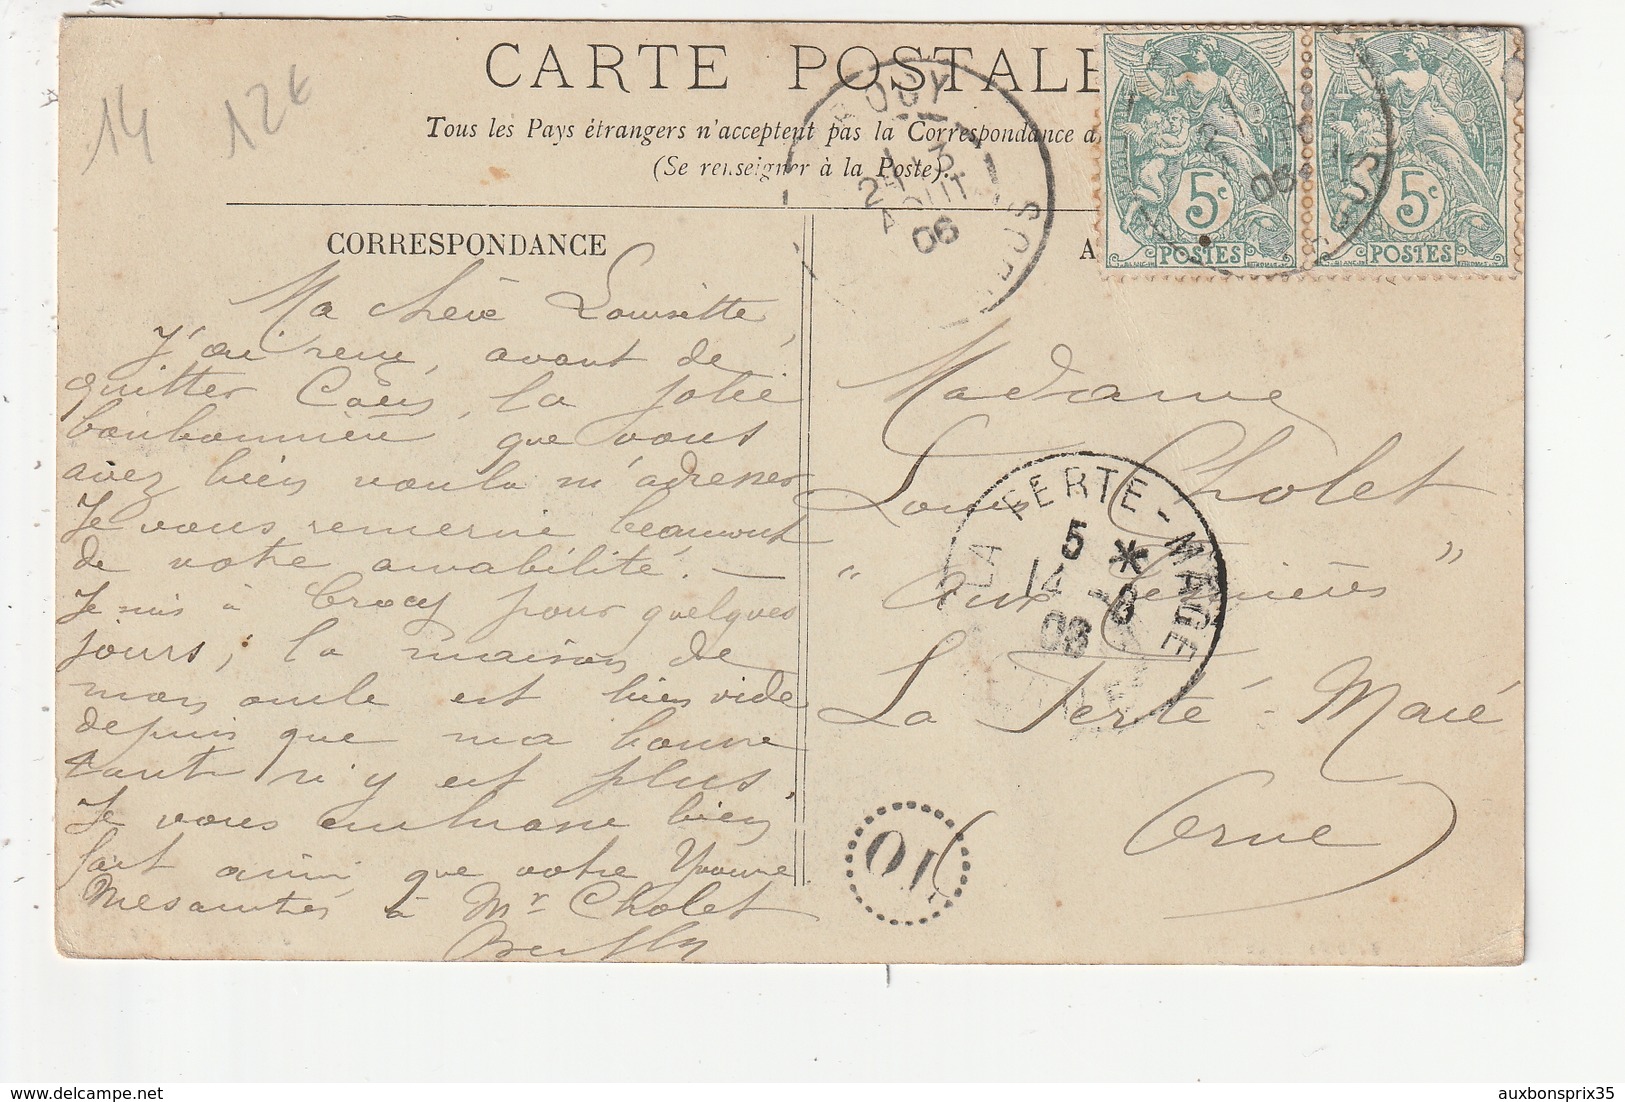 14 12€
CARTE POSTALE
Tous les Pays étrangers n'acceptent pas la Correspondance a
(Se renseigner à la Poste).
CORRESPONDANCE
A
Ma chère Louisette,
J'ai reçu, avant de
quitter Caën, la jolie
bonbonnière que vous
avez bien voulu m'adresser
Je vous remercie beaucoup
de votre amabilité. —
Je suis à Crocy pour quelques
jours, la maison de
mon oncle est bien vide
depuis que ma bonne
tante n'y est plus.
Je vous embrasse bien
fort ainsi que votre Yvonne
Mes amitiés à Mr Cholet
Madame
Louis Cholet
"aux "
La Ferté-Macé
Orne
5c POSTES
5c POSTES
AOUT
06
LA FERTE-MACE
5 *
14 -8
06
ORNE
01
auxbonsprix35